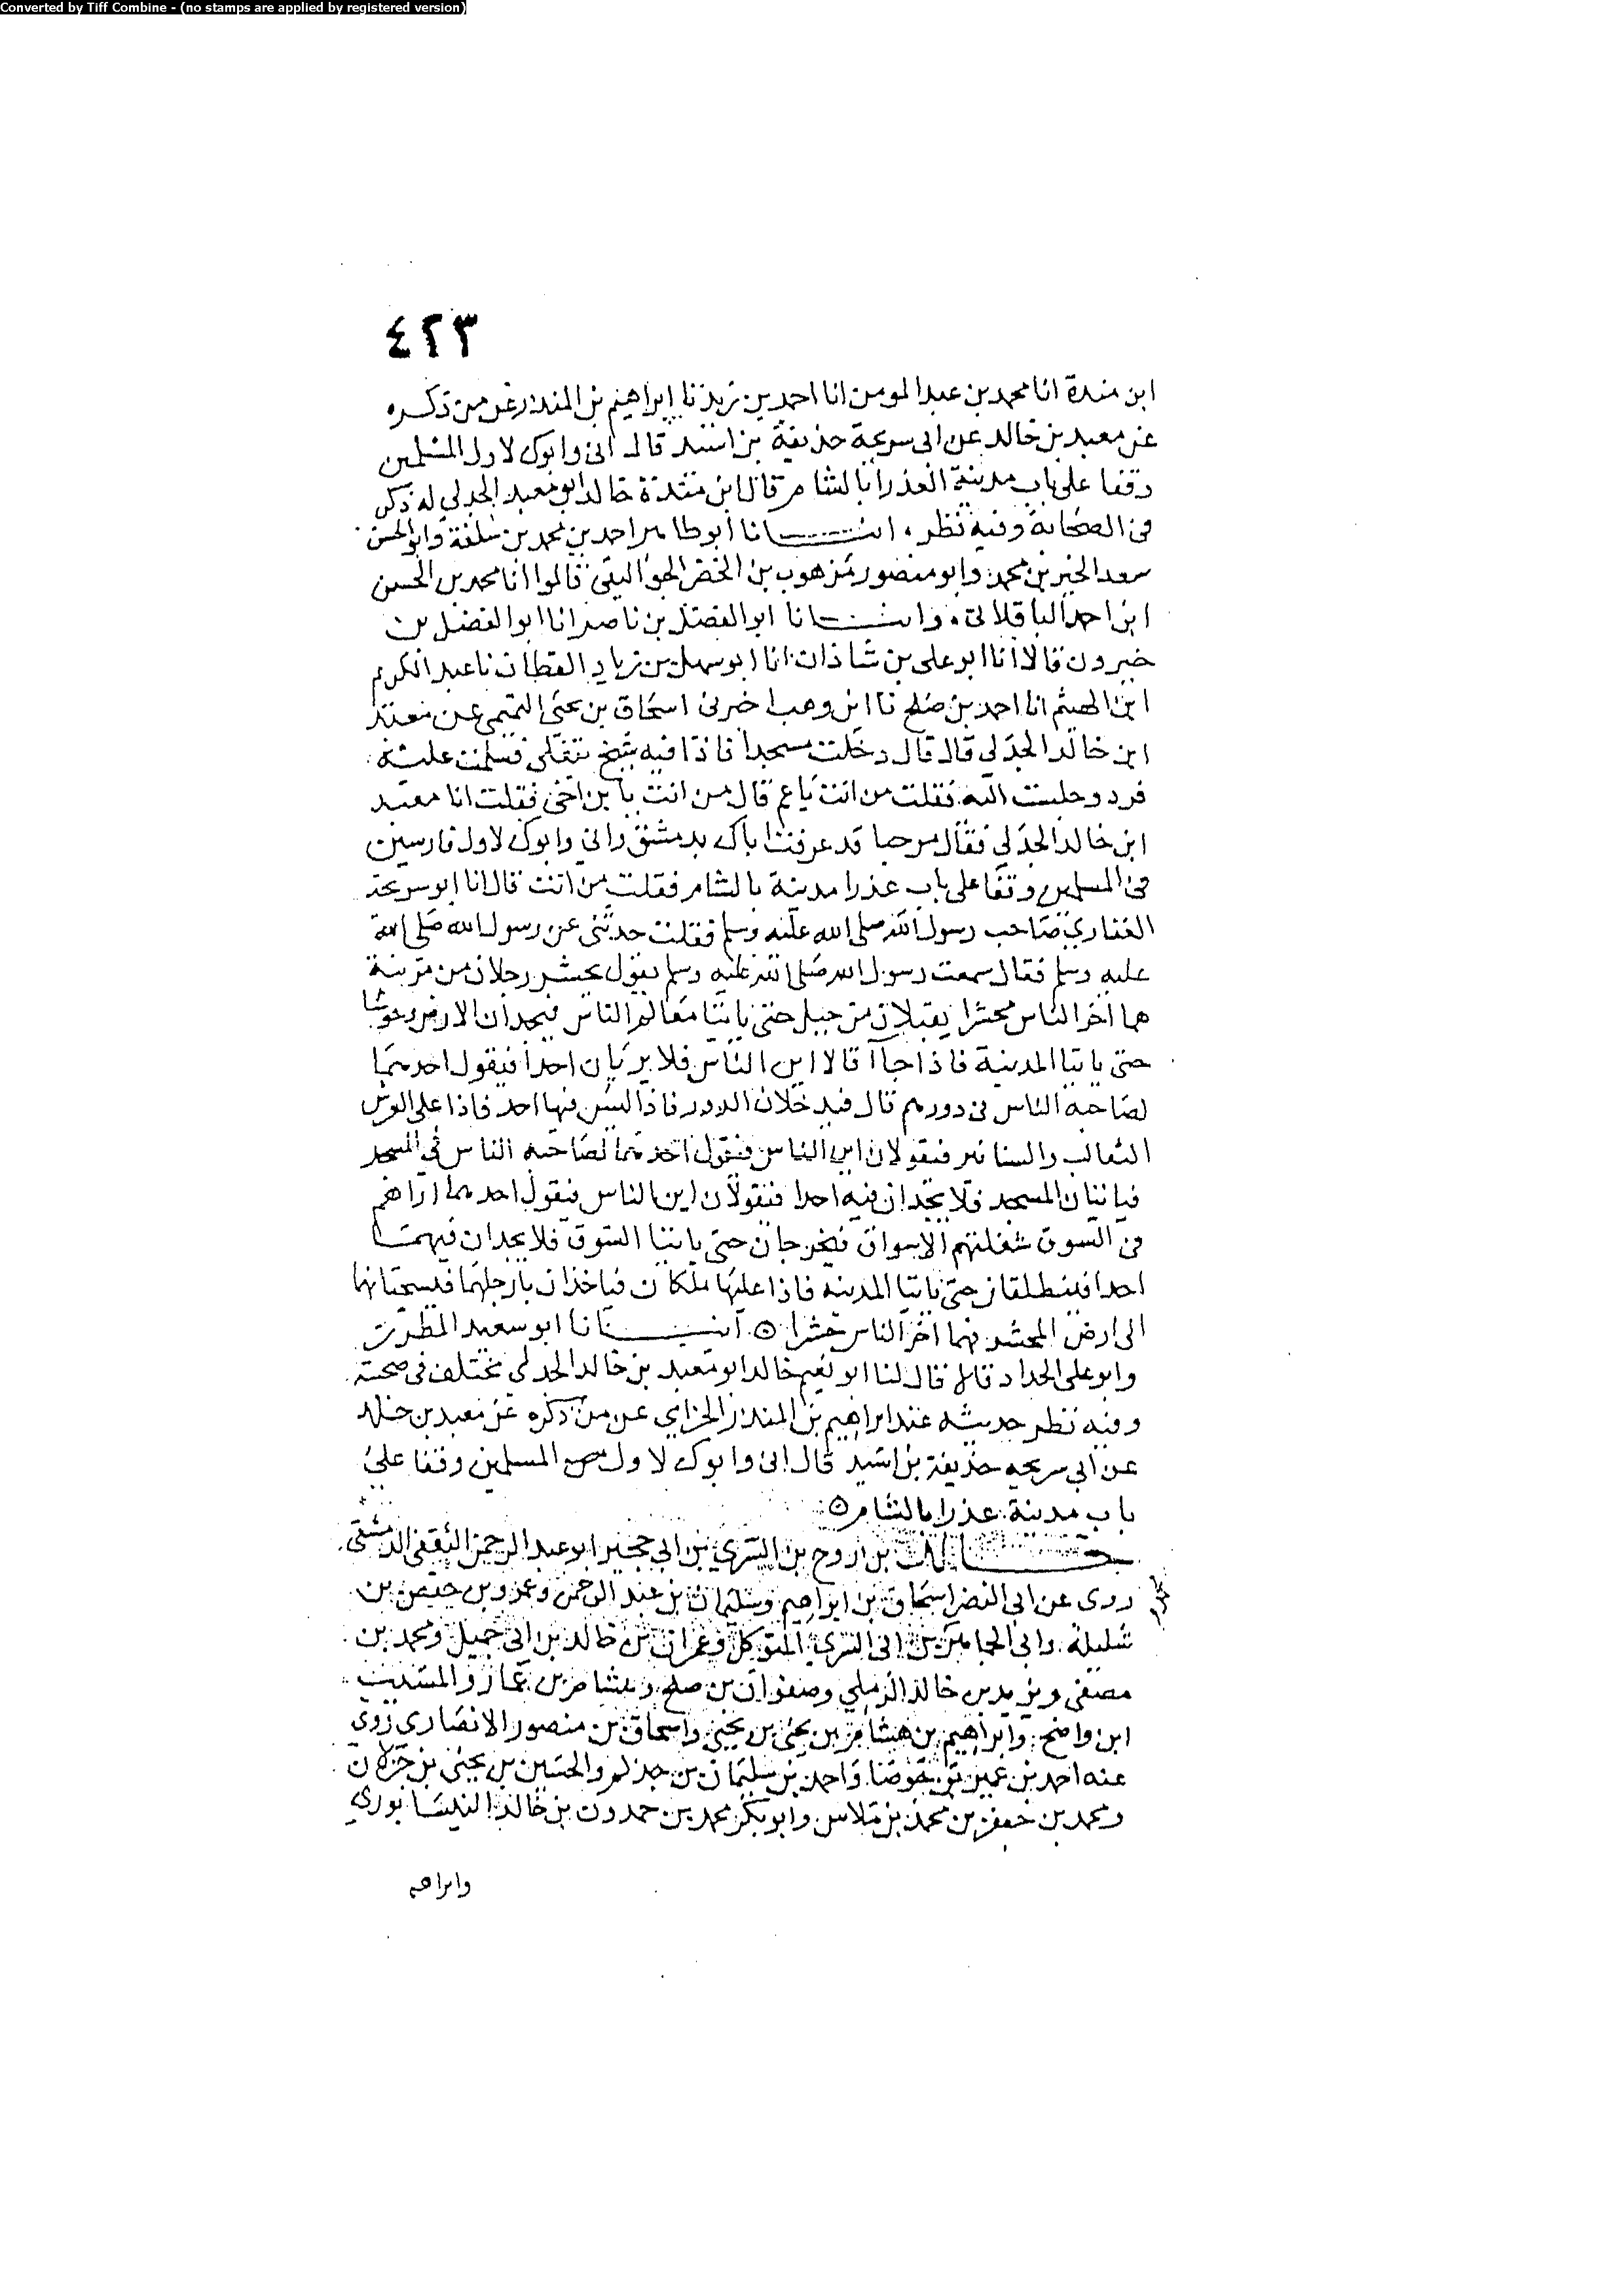 Converted by Tiff Combine - (no stamps are applied by registered version)
٤٢٣
ابن مندة انا محمد بن عبد المومن انا احمد بن زيد نا ابراهيم بن المنذر عن من ذكره
عن معبد بن خالد عن ابى سريحة حذيفة بن اسيد قال انى وابوك لاول المسلمين
وقفا على باب مدينة العذرا بالشام قال ابن مندة خالد ابو معبد الجدلي له ذكر
فى الصحابة وفيه نظر، انبـــانا ابو طاهر احمد بن محمد بن سلفة وابو الحسن
سعد الخير بن محمد وابو منصور موهوب بن الخضر الجواليقى قالوا انا محمد بن الحسن
ابن احمد الباقلانى، وانبـــانا ابو الفضل بن ناصر انا ابو الفضل بن
خيرون قالا انا ابو على بن شاذان انا ابو سهل بن زياد القطان نا عبد الكريم
ابن الهيثم انا احمد بن صلح نا ابن وهب اخبرنى اسحاق بن يحيى التيمى عن معبد
ابن خالد الجدلى قال قال دخلت مسجدا فاذا فيه شيخ يتفلى فسلمت عليه
فرد وجلست اليه فقلت من انت ياعم قال من انت يا بن اخى فقلت انا معبد
ابن خالد الجدلى فقال مرحبا قد عرفت اباك بدمشق وانى وابوك لاول فارسين
من المسلمين وقفا على باب عذرا مدينة بالشام فقلت من انت قال انا ابو سريحة
الغفاري صاحب رسول الله صلى الله عليه وسلم فقلت حدثنى عن رسول الله صلى الله
عليه وسلم فقال سمعت رسول الله صلى الله عليه وسلم يقول يحشر رجلان من مزينة
هما اخر الناس محشرا يقبلان من جبل حتى ياتيا معالم الناس فيجدان الارض وحوشا
حتى ياتيا المدينة فاذا جاآ قالا اين الناس فلا يريان احدا فيقول احدهما
لصاحبه الناس فى دورهم قال فيدخلان الدور فاذا ليس فيها احد فاذا على الفرش
الثعالب والسنانير فيقولان اين الناس فيقول احدهما لصاحبه الناس فى المسجد
فياتيان المسجد فلا يجدان فيه احدا فيقولان اين الناس فيقول احدهما اراهم
فى السوق شغلتهم الاسواق فيخرجان حتى ياتيا السوق فلا يجدان فيهما
احدا فينطلقان حتى ياتيا المدينه فاذا عليها ملكان فياخذان بارجلهما فيسحبانهما
الى ارض المحشر فهما اخر الناس حشرا ه انبـــانا ابو سعيد المطرز
وابو على الحداد قالا قال لنا ابو نعيم خالد ابو معبد بن خالد الجدلى مختلف فى صحبته
وفيه نظر حديثه عند ابراهيم بن المنذر الحزامي عن من ذكره عن معبد بن خالد
عن ابى سريحه حذيفة بن اسيد قال انى وابوك لاول المسلمين وقفا على
باب مدينة عذرا بالشام ه
خـــالد بن روح بن السري بن ابي حجير ابو عبد الرحمن الثقفى الدمشقى
روى عن ابى النضر اسحاق بن ابراهيم وسليمان بن عبد الرحمن وعمرو بن حفص بن
شليلة وابى الجماهر بن ابى السري المتوكل وعمران بن خالد بن ابى جميل ومحمد بن
مصفى ويزيد بن خالد الرملي وصفوان بن صلح وهشام بن عمار والمسيب
ابن واضح وابراهيم بن هشام بن يحيى بن يحيى واسحاق بن منصور الانصارى روى
عنه احمد بن عمير بن جوصا واحمد بن سليمان بن حذلم والحسين بن يحيى بن جزلان
ومحمد بن جعفر بن محمد بن ملاس وابو بكر محمد بن حمدون بن خالد النيسابوري
وابراهيم